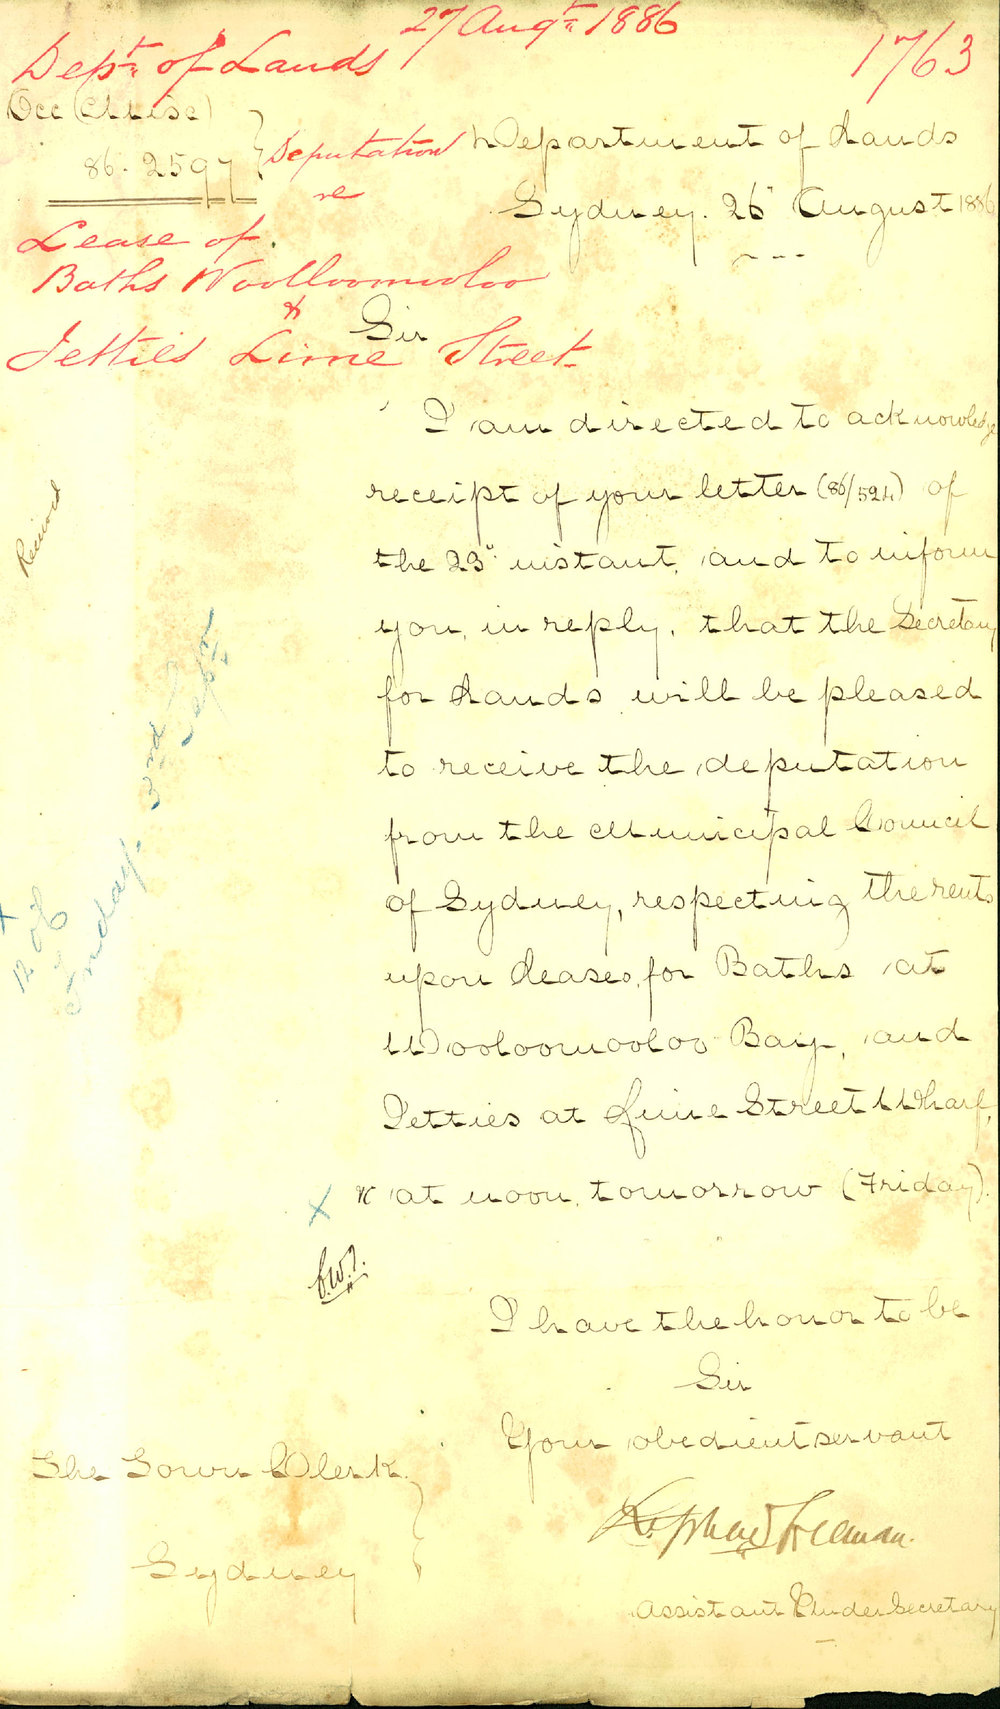 27 Augt 1886
Dept of Lands
1763
Occ (Misc)
86. 2597
Deputation
re
Lease of
Baths Woolloomooloo
&
Jetties Lime Street
Department of Lands
Sydney. 26 August 1886
Sir
I am directed to acknowledge
receipt of your letter (86/524) of
the 23d instant, and to inform
you, in reply, that the Secretary
for Lands will be pleased
to receive the deputation
from the Municipal Council
of Sydney, respecting the rents
upon Leases for Baths at
Wooloomooloo Bay, and
Jetties at Lime Street Wharf,
at noon, tomorrow (Friday).
Friday. 3rd Sept
I have the honor to be
Sir
Your obedient servant
Freeman.
Assistant Under Secretary
The Town Clerk
Sydney